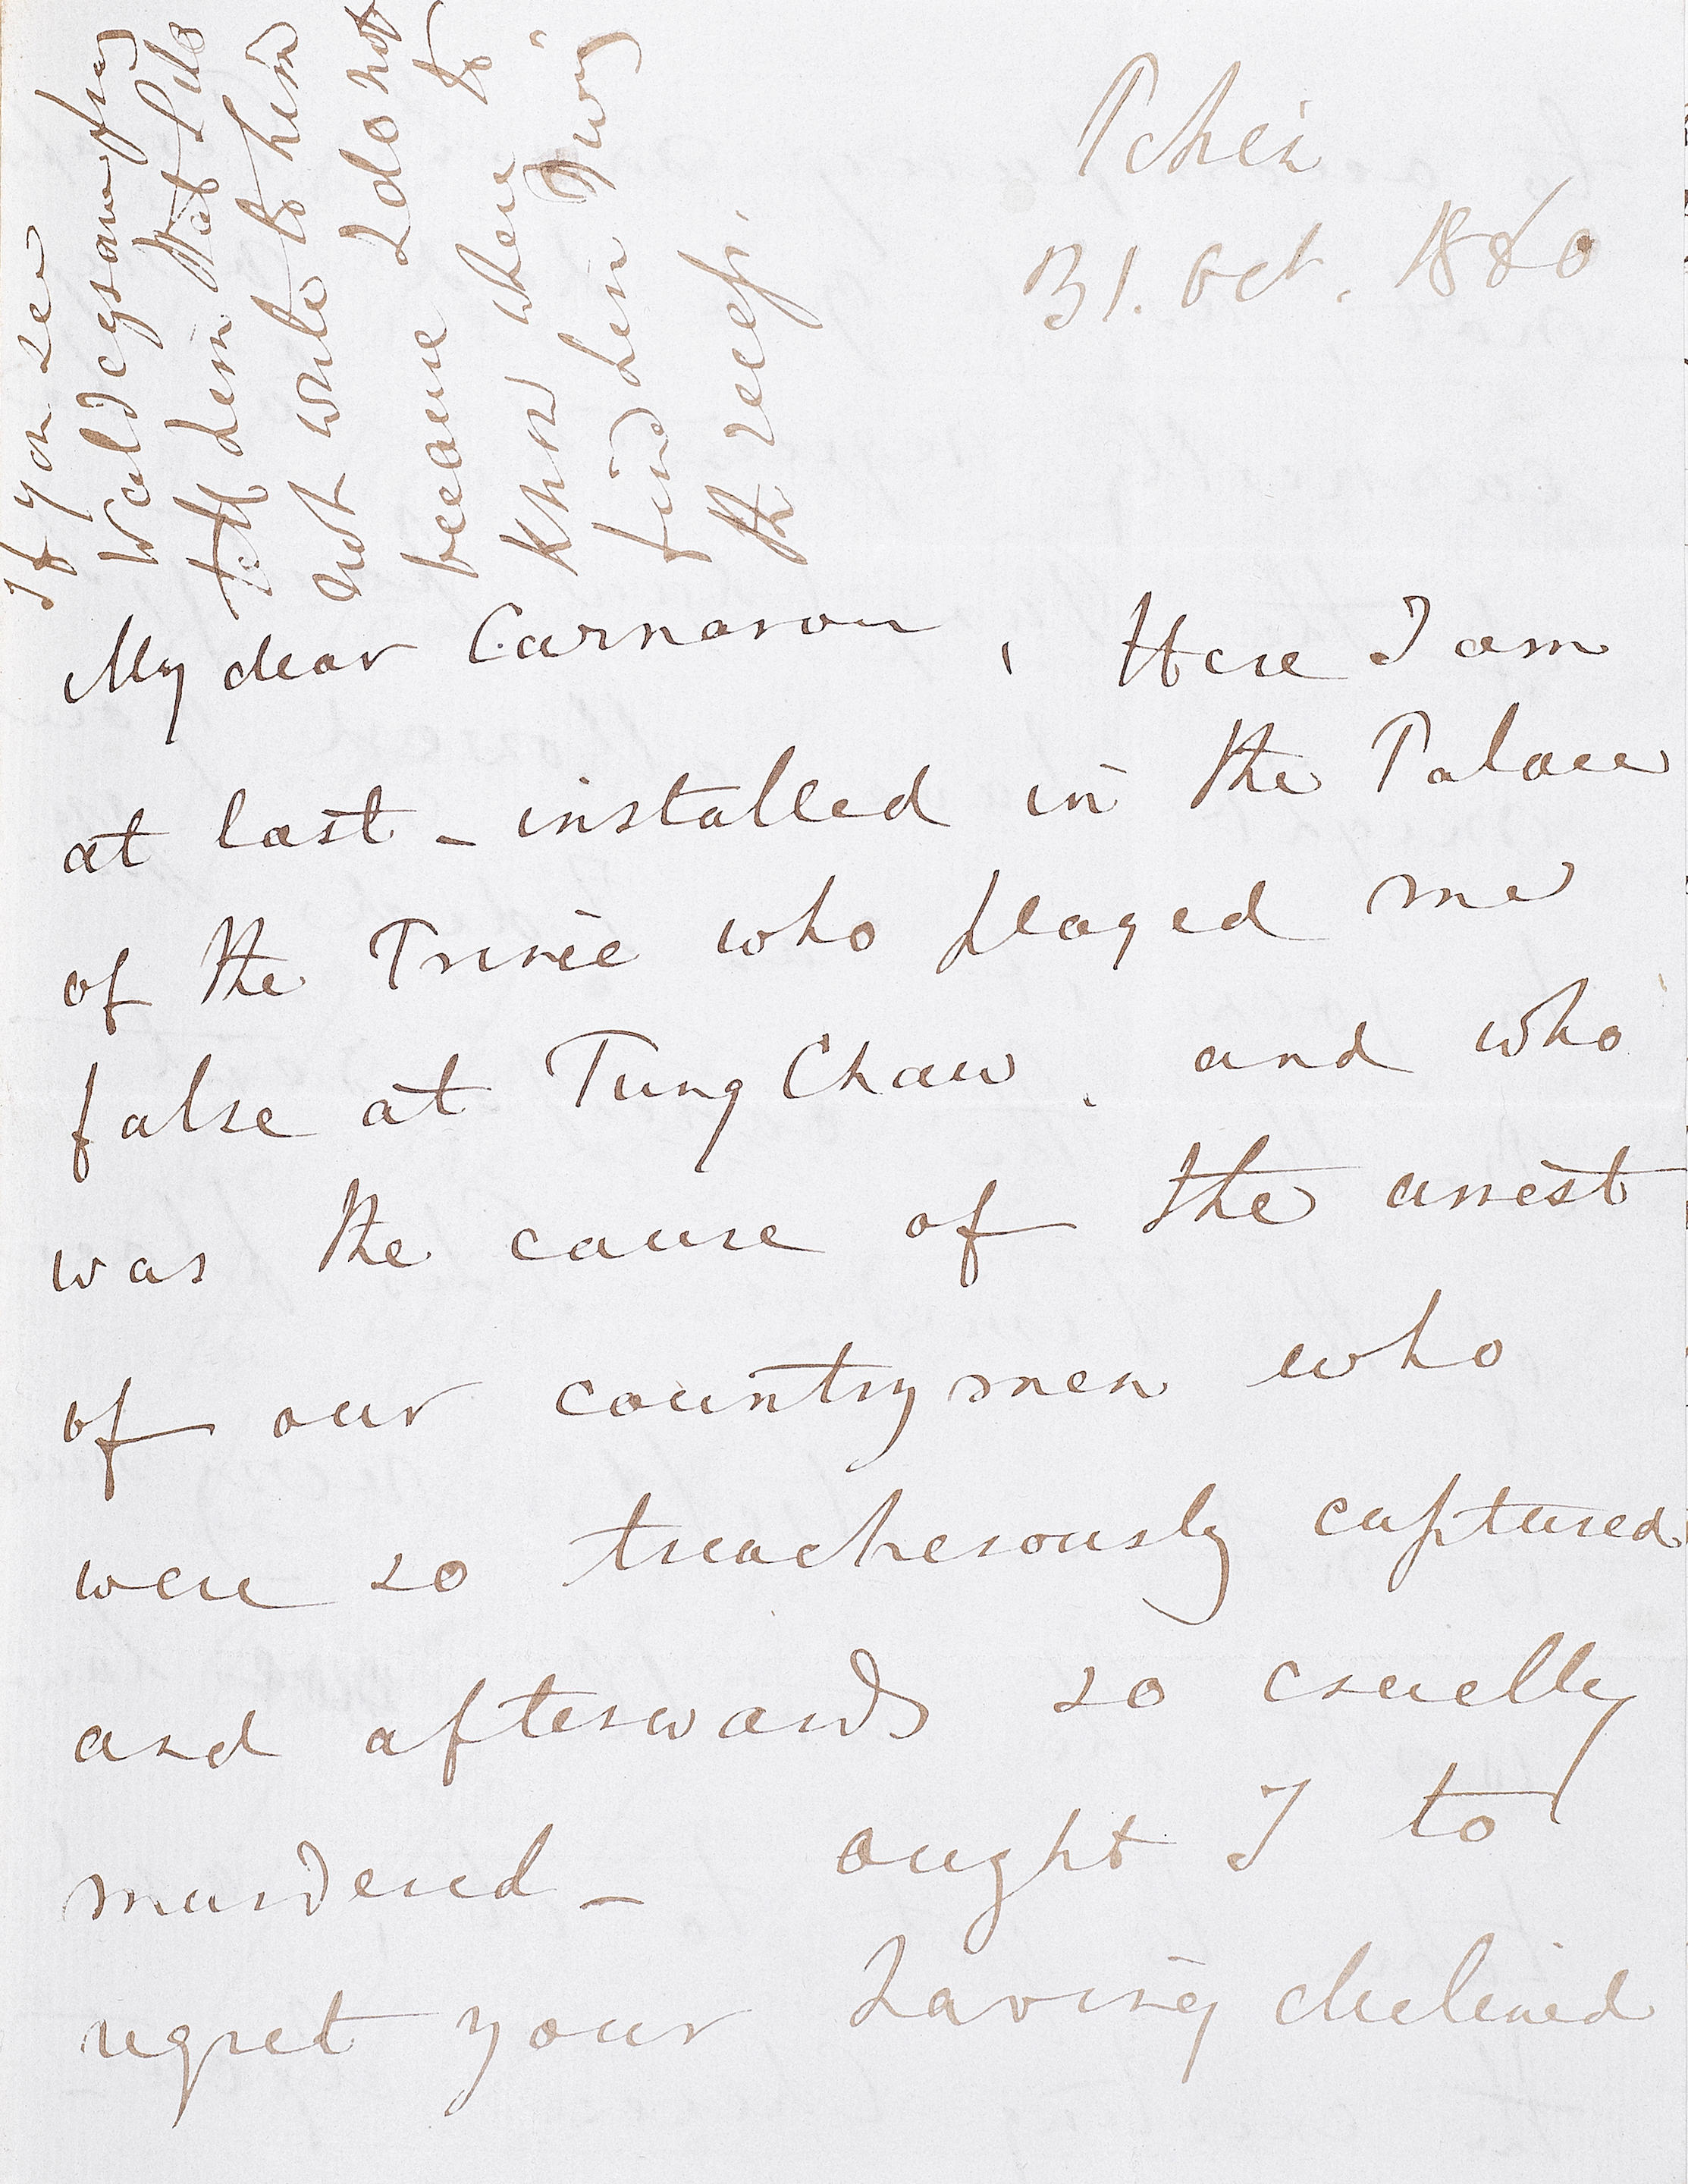 Pekin
31. Oct. 1860
My dear Carnarvon, Here I am
at last - installed in the Palace
of the Prince who played me
false at Tung Chaw, and who
was the cause of the arrest
of our countrymen who
were so treacherously captured
and afterwards so cruelly
murdered - ought I to
regret your having declined
If you see
Waldegrave pray
tell him that I do
not write to him
because I do not
know where to
find him. Yours